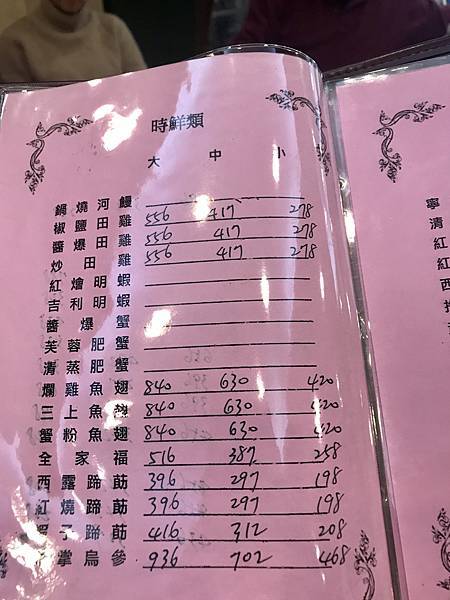 時鮮類
大 中 小
鍋燒河鰻
椒鹽田雞 556 417 278
醬爆田雞 556 417 278
炒田雞 556 417 278
紅燴明蝦
吉利明蝦
醬爆蟹
芙蓉肥蟹
清蒸肥蟹
爛雞魚翅 840 630 420
三上魚翅 840 630 420
蟹粉魚翅 840 630 420
全家福 516 387 258
西露蹄莇 396 297 198
紅燒蹄莇 396 297 198
子蹄莇 416 312 208
掌烏參 936 702 468
寧
清
紅
紅
西